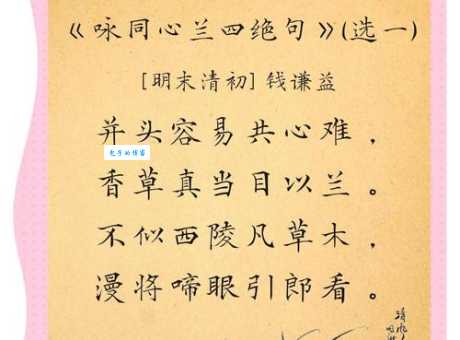 《咏同心兰四绝句》(选一)
[明末清初]钱谦益
并头容易共心难，
电子的博客
香草真当目以兰。
不似西陵凡草木，
漫将啼眼引郎看。